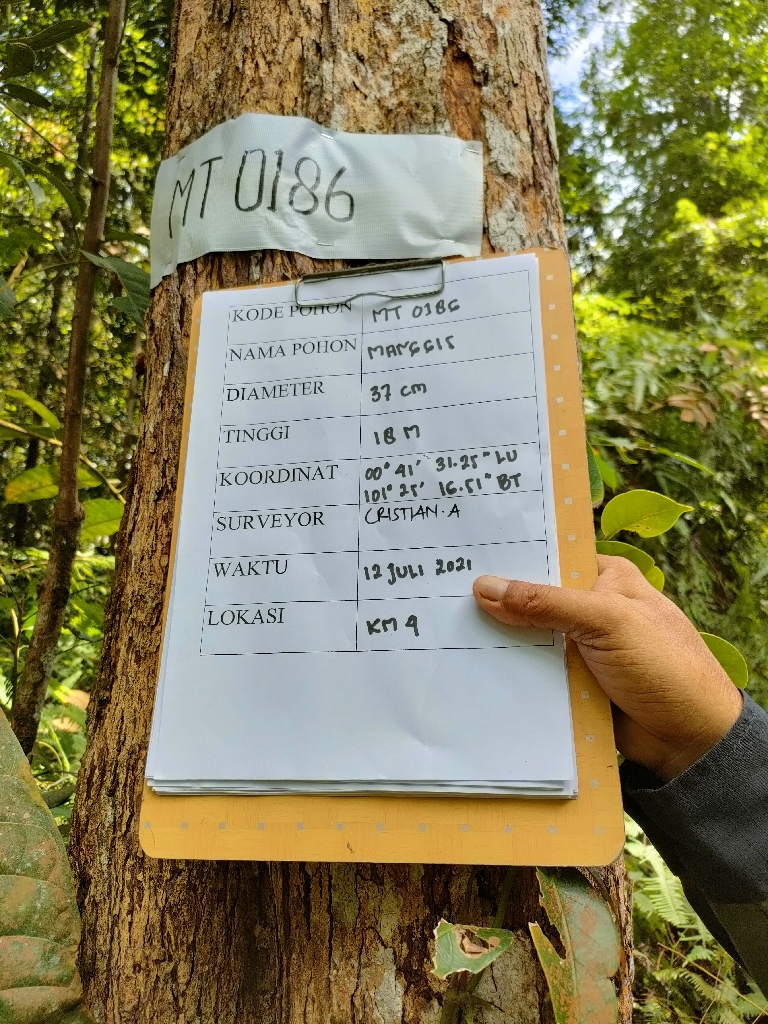 MT 0186
KODE POHON MT 0186
NAMA POHON MANGGIS
DIAMETER 37 cm
TINGGI 18 M
KOORDINAT 00° 41' 31.25" LU
101° 25' 16.51" BT
SURVEYOR CRISTIAN.A
WAKTU 12 JULI 2021
LOKASI KM 4